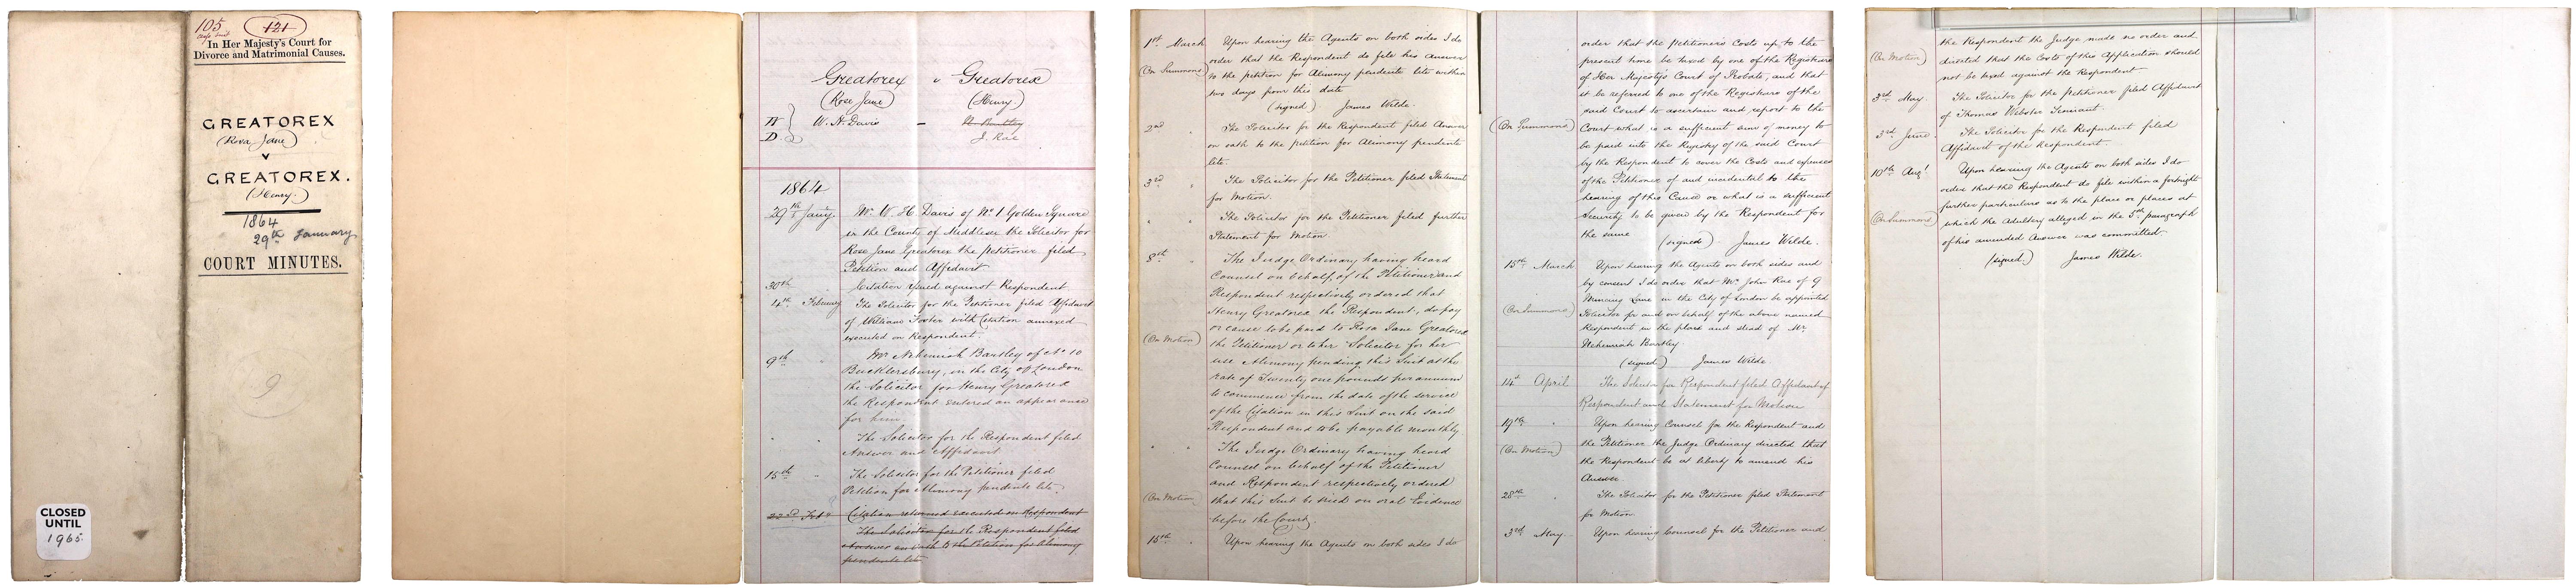 105
121
In Her Majesty's Court for
Divorce and Matrimonial Causes.
GREATOREX
(Rosa Jane)
v
GREATOREX.
(Henry.)
1864
29th January
COURT MINUTES.
9
CLOSED
UNTIL
1965
Greatorex v Greatorex
(Rose Jane) (Henry.)
W. H. Davis - N. Bartley
D. J. Rae
1864
29th Jany. Mr. W. H. Davis of No. 1 Golden Square
in the County of Middlesex the Solicitor for
Rose Jane Greatorex the Petitioner filed
Petition and Affidavit
30th Citation issued against Respondent
4th February The Solicitor for the Petitioner filed Affidavit
of William Foster with Citation annexed
executed on Respondent.
9th Mr. Nehemiah Bartley of No. 10
Bucklersbury, in the City of London
the Solicitor for Henry Greatorex
the Respondent entered an appearance
for him.
" " The Solicitor for the Respondent filed
Answer and Affidavit
15th " The Solicitor for the Petitioner filed
Petition for Alimony pendente lite.
22nd Feby Citation returned executed on Respondent
The Solicitor for the Respondent filed
Answer on Oath to the Petition for Alimony
pendente lite
1st March Upon hearing the Agents on both sides I do
(On Summons) order that the Respondent do file his answer
to the petition for Alimony pendente lite within
two days from this date
(signed) James Wilde.
2nd " The Solicitor for the Respondent filed Answer
on oath to the petition for Alimony pendente
lite.
3rd " The Solicitor for the Petitioner filed Statement
for Motion.
" " The Solicitor for the Petitioner filed further
Statement for Motion.
8th " The Judge Ordinary having heard
Counsel on behalf of the Petitioner and
Respondent respectively ordered that
Henry Greatorex the Respondent, do pay
or cause to be paid to Rosa Jane Greatorex
(On Motion) the Petitioner or to her Solicitor for her
use Alimony pending this Suit at the
rate of Twenty one pounds per annum
to commence from the date of the service
of the Citation in this Suit on the said
Respondent and to be payable monthly.
" " The Judge Ordinary having heard
Counsel on behalf of the Petitioner
and Respondent respectively ordered
(On Motion) that this Suit be tried on oral Evidence
before the Court.
15th " Upon hearing the Agents on both sides I do
order that the Petitioner's Costs up to the
present time be taxed by one of the Registrars
of Her Majesty's Court of Probate, and that
it be referred to one of the Registrars of the
said Court to ascertain and report to the
(On Summons) Court what is a sufficient sum of money to
be paid into the Registry of the said Court
by the Respondent to cover the Costs and expenses
of the Petitioner of and incidental to the
hearing of this Cause or what is a sufficient
Security to be given by the Respondent for
the same (signed) James Wilde.
15th March Upon hearing the Agents on both sides and
by consent I do order that Mr. John Rae of 9
Mincing Lane in the City of London be appointed
(On Summons) Solicitor for and on behalf of the above named
Respondent in the place and stead of Mr.
Nehemiah Bartley.
(signed) James Wilde.
14th April The Solicitor for Respondent filed Affidavit of
Respondent and Statement for Motion
19th " Upon hearing Counsel for the Respondent and
(On Motion) the Petitioner the Judge Ordinary directed that
the Respondent be at liberty to amend his
Answer.
28th " The Solicitor for the Petitioner filed Statement
for Motion
3rd May. Upon hearing Counsel for the Petitioner and
the Respondent the Judge made no order and
(On Motion) directed that the Costs of this Application should
not be taxed against the Respondent.
3rd May. The Solicitor for the Petitioner filed Affidavit
of Thomas Webster Tennant.
3rd June. The Solicitor for the Respondent filed
Affidavit of the Respondent.
10th Augt Upon hearing the Agents on both sides I do
order that the Respondent do file within a fortnight
further particulars as to the place or places at
(On Summons) which the Adultery alleged in the 5th paragraph
of his amended Answer was committed.
(signed) James Wilde.